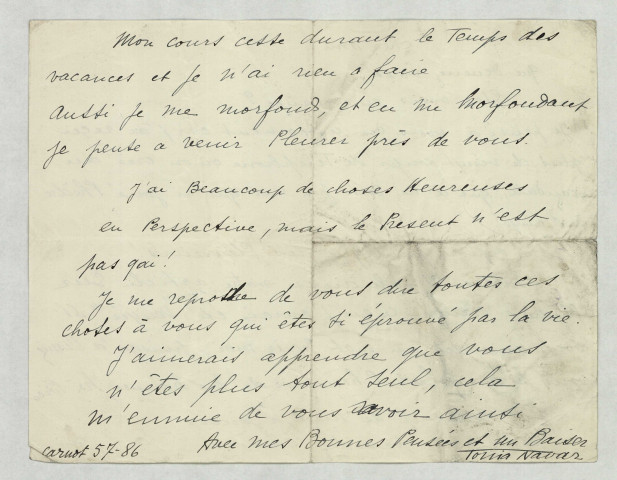 Mon cours cesse durant le Temps des
vacances et Je n'ai rien a faire
Aussi Je me morfond, et en me Morfondant
Je pense a venir Pleurer près de vous.
J'ai Beaucoup de choses Heureuses
en Perspective, mais le Present n'est
pas gai!
Je me reproche de vous dire toutes ces
choses à vous qui êtes si éprouvé par la vie.
J'aimerais apprendre que vous
n'êtes plus tout seul, cela
m'ennuie de vous savoir ainsi
Avec mes Bonnes Pensées et un Baiser
carnot 57-86 Tonia Navar